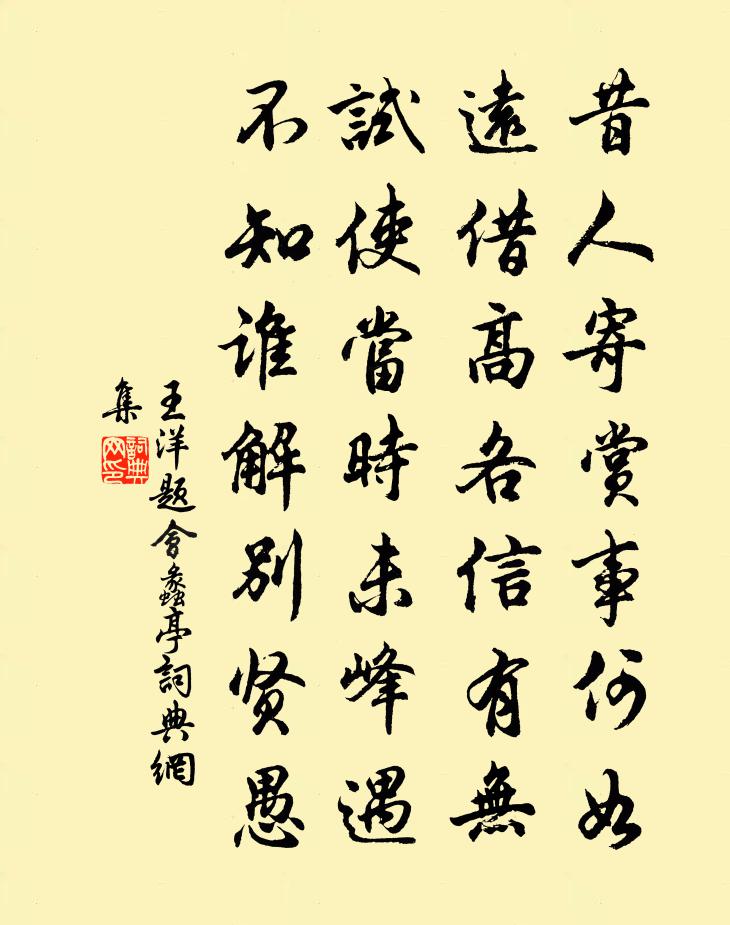 昔人寄賞事何如
遠借高名信有無
試使當時未峰遇
不知誰解別贤愚
王洋题會蠡亭詞典網
集
詞典網印